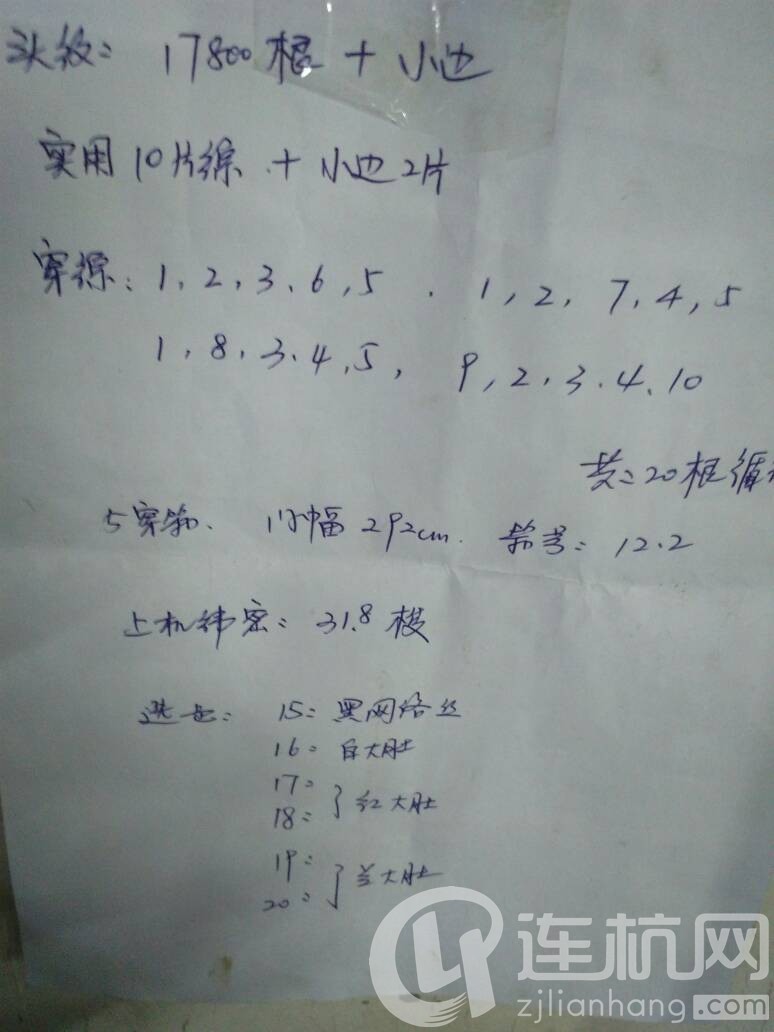 头纹: 17800根 + 小边
实用10片综 + 小边2片
穿综: 1, 2, 3, 6, 5 . 1, 2, 7, 4, 5
1, 8, 3, 4, 5, 9, 2, 3, 4, 10
共: 20根循
5穿筘、 门幅292cm. 筘号: 12.2
上机纬密: 31.8梭
选色: 15: 黑网络丝
16: 白大肚
17:
18: } 红大肚
19:
20: } 兰大肚
连杭网
zjlianhang.com